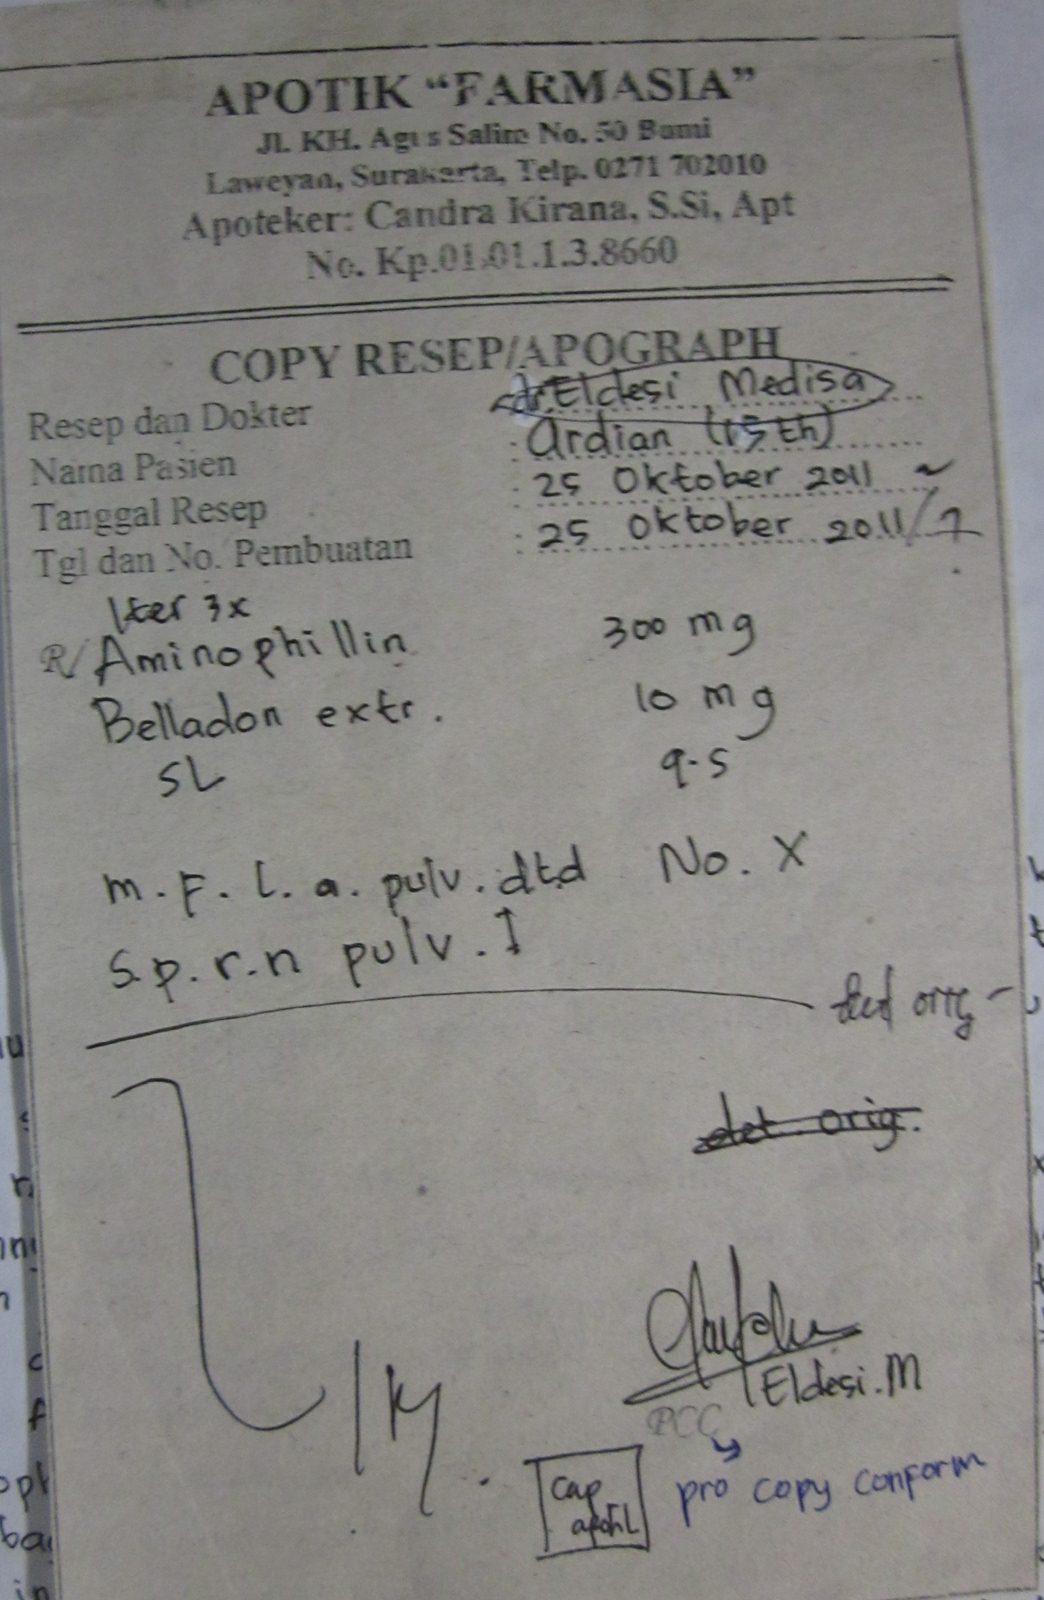 APOTIK “FARMASIA”
Jl. KH. Agus Salim No. 50 Bumi
Laweyan, Surakarta, Telp. 0271 702010
Apoteker: Candra Kirana, S.Si, Apt
No. Kp.01.01.1.3.8660
COPY RESEP/APOGRAPH
Resep dan Dokter dr. Eldesi Medisa
Nama Pasien : Ardian (15 th)
Tanggal Resep : 25 Oktober 2011
Tgl dan No. Pembuatan : 25 Oktober 2011/7
Iter 3x
R/ Aminophillin 300 mg
Belladon extr. 10 mg
SL q.s
m.F.l.a. pulv. dtd No. X
S.p.r.n pulv. I
det orig
det orig.
Eldesi.M
PCC
cap
pro copy conform